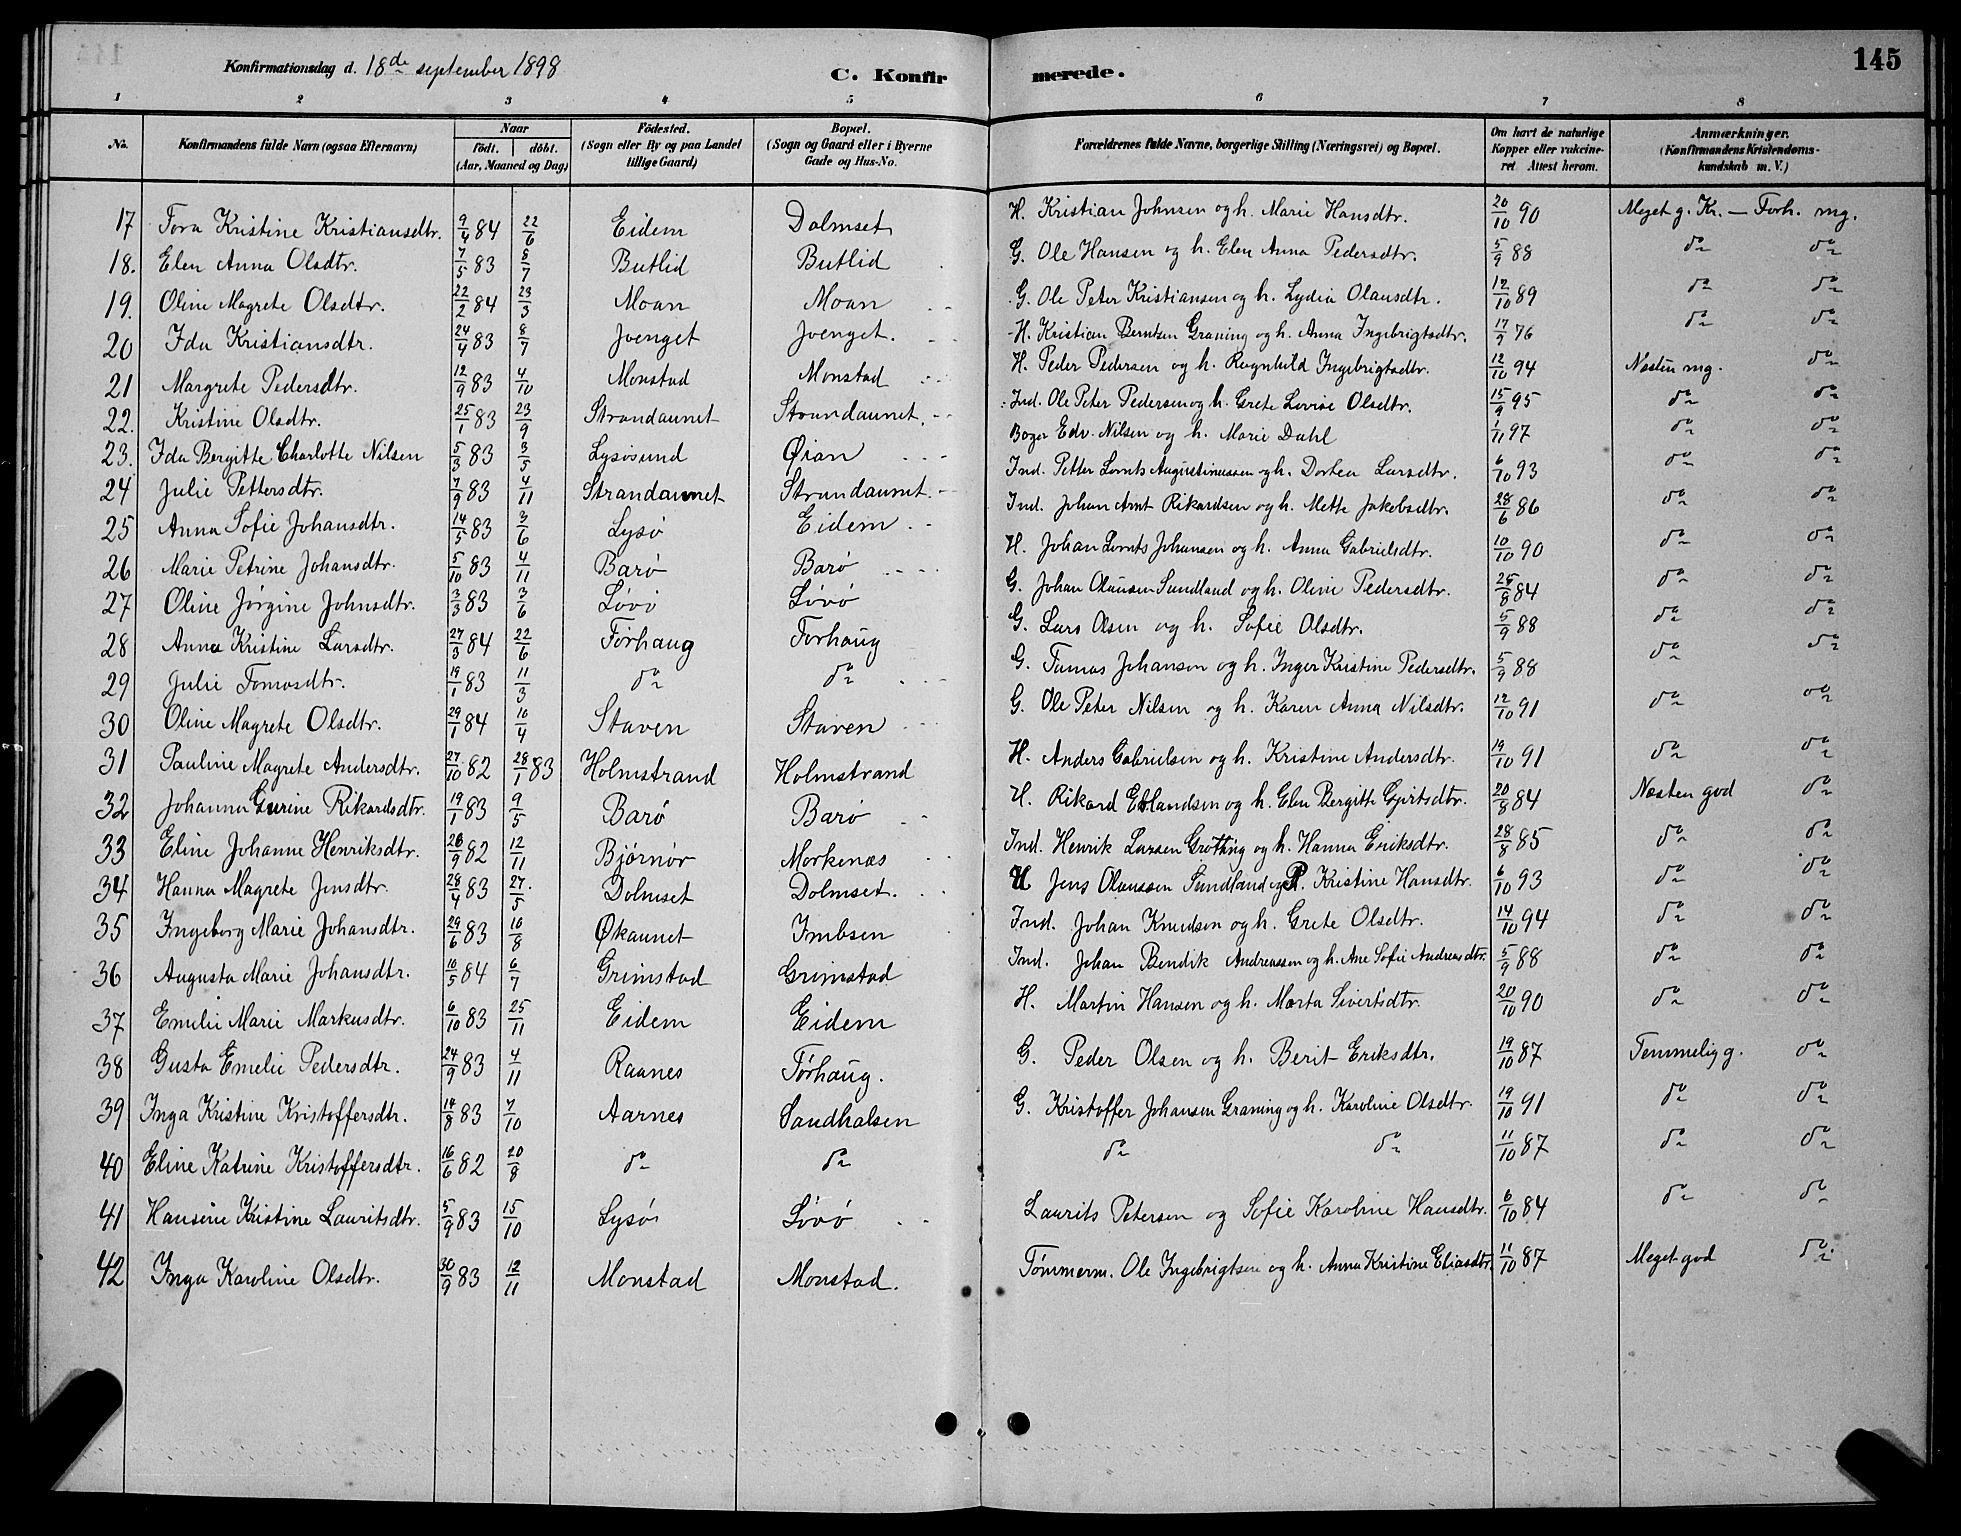 Konfirmationsdag d. 18de september 1898
C. Konfir merede.
145
1 2 3 4 5 6 7 8
No. | Konfirmandens fulde Navn (ogsaa Efternavn) | Naar födt. döbt. (Aar, Maaned og Dag) | Födested. (Sogn eller By og paa Landet tillige Gaard) | Bopæl. (Sogn og Gaard eller i Byerne Gade og Hus-No. | Forældrenes fulde Navne, borgerlige Stilling (Næringsvei) og Bopæl. | Om havt de naturlige Kopper eller vakcineret Attest herom. | Anmærkninger. (Konfirmandens Kristendomskundskab m. V.)
17 Tora Kristine Kristiansdtr. 9/4 84 22/6 Eidem Dolmset H. Kristian Johnsen og h. Marie Hansdtr. 20/10 90 Meget g. Kr. — Forh. mg.
18. Elen Anna Olsdtr. 7/5 83 8/7 Butlid Butlid G. Ole Hansen og h. Elen Anna Pedersdtr. 5/9 88 do do
19. Oline Magrete Olsdtr. 22/2 84 23/3 Moan Moan G. Ole Peter Kristiansen og h. Lydia Olausdtr. 12/10 89 do do
20 Ida Kristiansdtr. 24/4 83 8/7 Jvenget Jvenget. H. Kristian Berntsen Graning og h. Anna Ingebrigtsdtr. 17/9 76 do do
21 Margrete Pedersdtr. 12/9 83 4/10 Monstad Monstad H. Peder Pedersen og h. Ragnhild Ingebrigtsdtr. 12/10 94 Næsten mg. do
22. Kristine Olsdtr. 25/1 83 23/9 Strandaunet Strandaunet. Ind. Ole Peter Pedersen og h. Grete Lovise Olsdtr. 15/9 95 do do
23. Ida Bergitte Charlotte Nilsen 5/3 83 3/5 Lysösund Øian Bager Edv. Nilsen og h. Marie Dahl 1/11 97 do do
24 Julie Pettersdtr. 7/9 83 4/11 Strandaunet Strandaunet. Ind. Petter Lornts Augustinussen og h. Dortea Larsdtr. 6/10 93 do do
25 Anna Sofie Johansdtr. 14/5 83 3/6 Lysö Eidem Ind. Johan Arnt Rikardsen og h. Mette Jakobsdtr. 28/6 86 do do
26 Marie Petrine Johansdtr. 5/10 83 4/11 Barö Barö H. Johan Lornts Johansen og h. Anna Gabrielsdtr. 10/10 90 do do
27 Oline Jörgine Johnsdtr. 3/3 83 3/6 Lövö Lövö G. Johan Olausen Sundland og h. Oline Pedersdtr. 25/8 84 do do
28 Anna Kristine Larsdtr. 27/3 84 22/6 Törhaug Törhaug G. Lars Olsen og h. Sofie Olsdtr. 5/9 88 do do
29 Julie Tomasdtr. 19/1 83 11/3 do do G. Tomas Johansen og h. Inger Kristine Pedersdtr. 5/9 88 do do
30 Oline Magrete Olsdtr. 29/1 84 10/4 Staven Staven G. Ole Peter Nilsen og h. Karen Anna Nilsdtr. 12/10 91 do do
31 Pauline Magrete Andersdtr. 27/10 82 28/1 83 Holmstrand Holmstrand H. Anders Gabrielsen og h. Kristine Andersdtr. 19/10 91 do do
32 Johanna Gurine Rikardsdtr. 19/1 83 9/5 Barö Barö H. Rikard Erlandsen og h. Elen Bergitte Gjertsdtr. 20/8 84 Næsten god do
33 Eline Johanne Henriksdtr. 26/9 82 12/11 Björnör Morkenæs Ind. Henrik Larsen Gröttingen og h. Hanna Eriksdtr. 28/8 85 do do
34 Hanna Magrete Jensdtr. 28/4 83 27/5 Dolmset Dolmset. H Jens Olaussen Sundland og h. Kristine Hansdtr. 6/10 93 do do
35 Ingeborg Marie Johansdtr. 29/6 83 10/8 Økaunet Imbsen Ind. Johan Knudsen og h. Grete Olsdtr. 14/10 94 do do
36 Augusta Marie Johansdtr. 10/5 84 6/7 Grimstad Grimstad Ind. Johan Bendik Andreassen og h. Ane Sofie Andreasdtr. 5/9 88 do do
37 Emelie Marie Markusdtr. 6/10 83 25/11 Eidem Eidem H. Martin Hansen og h. Marta Sivertsdtr. 20/10 90 do do
38 Gusta Emelie Pedersdtr. 24/9 83 4/11 Raanes Törhaug. G. Peder Olsen og h. Berit Eriksdtr. 19/10 87 Temmelig g. do
39 Inga Kristine Kristoffersdtr. 14/8 83 7/10 Aarnes Sandhalsen G. Kristoffer Johansen Graning og h. Karoline Olsdtr. 19/10 91 do do
40 Eline Katrine Kristoffersdtr. 16/6 82 20/8 do do do do 11/10 87 do do
41 Hansine Kristine Lauritsdtr. 5/9 83 15/10 Lysö Lövö Laurits Petersen og Sofie Karoline Hansdtr. 6/10 84 do do
42 Inga Karoline Olsdtr. 30/9 83 12/11 Monstad Monstad. Tömmerm. Ole Ingebrigtsen og h. Anna Kristine Eliasdtr. 11/10 87 Meget god do